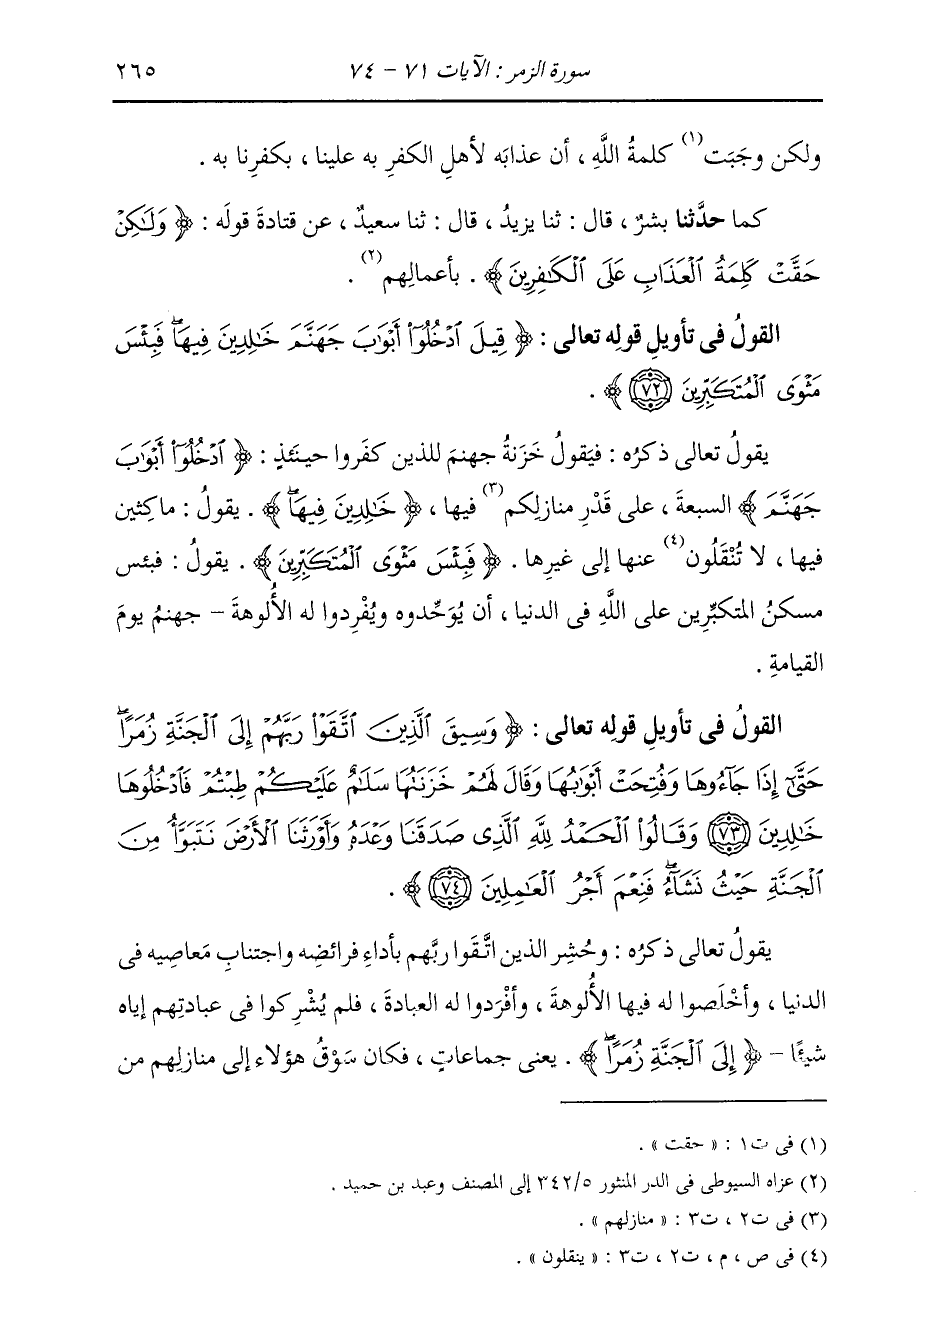 سورة الزمر : الآيات ٧١ - ٧٤ ٢٦٥
ولكن وجَبَت(١) كلمةُ اللَّهِ ، أن عذابَه لأهلِ الكفرِ به علينا ، بكفرِنا به .
كما حدَّثنا بشرٌ ، قال : ثنا يزيدُ ، قال : ثنا سعيدٌ ، عن قتادةَ قولَه : ﴿ وَلَٰكِنْ
حَقَّتْ كَلِمَةُ ٱلْعَذَابِ عَلَى ٱلْكَٰفِرِينَ ﴾ . بأعمالِهم(٢) .
القولُ فى تأويلِ قولِه تعالى : ﴿ قِيلَ ٱدْخُلُوٓا۟ أَبْوَٰبَ جَهَنَّمَ خَٰلِدِينَ فِيهَاۖ فَبِئْسَ
مَثْوَى ٱلْمُتَكَبِّرِينَ ٧٢ ﴾ .
يقولُ تعالى ذكرُه : فيَقولُ خَزَنةُ جهنمَ للذين كفَروا حينَئذٍ : ﴿ ٱدْخُلُوٓا۟ أَبْوَٰبَ
جَهَنَّمَ ﴾ السبعةَ ، على قَدْرِ منازلِكم(٣) فيها ، ﴿ خَٰلِدِينَ فِيهَاۖ ﴾ . يقولُ : ماكِثين
فيها ، لا تُنْقَلُون(٤) عنها إلى غيرِها . ﴿ فَبِئْسَ مَثْوَى ٱلْمُتَكَبِّرِينَ ﴾ . يقولُ : فبئس
مسكنُ المتكبِّرِين على اللَّهِ فى الدنيا ، أن يُوَحِّدوه ويُفْرِدوا له الأُلوهةَ - جهنمُ يومَ
القيامةِ .
القولُ فى تأويلِ قولِه تعالى : ﴿ وَسِيقَ ٱلَّذِينَ ٱتَّقَوْا۟ رَبَّهُمْ إِلَى ٱلْجَنَّةِ زُمَرًاۖ
حَتَّىٰٓ إِذَا جَآءُوهَا وَفُتِحَتْ أَبْوَٰبُهَا وَقَالَ لَهُمْ خَزَنَتُهَا سَلَٰمٌ عَلَيْكُمْ طِبْتُمْ فَٱدْخُلُوهَا
خَٰلِدِينَ ٧٣ وَقَالُوا۟ ٱلْحَمْدُ لِلَّهِ ٱلَّذِى صَدَقَنَا وَعْدَهُۥ وَأَوْرَثَنَا ٱلْأَرْضَ نَتَبَوَّأُ مِنَ
ٱلْجَنَّةِ حَيْثُ نَشَآءُۖ فَنِعْمَ أَجْرُ ٱلْعَٰمِلِينَ ٧٤ ﴾ .
يقولُ تعالى ذكرُه : وحُشِر الذين اتَّقَوا ربَّهم بأداءِ فرائضِه واجتنابِ مَعاصِيه فى
الدنيا ، وأخْلَصوا له فيها الأُلوهةَ ، وأفْرَدوا له العبادةَ ، فلم يُشْرِكوا فى عبادتِهم إياه
شيئًا - ﴿ إِلَى ٱلْجَنَّةِ زُمَرًاۖ ﴾ . يعنى جماعاتٍ ، فكان سَوْقُ هؤلاء إلى منازلِهم من
(١) فى ت١ : « حقت » .
(٢) عزاه السيوطى فى الدر المنثور ٣٤٢/٥ إلى المصنف وعبد بن حميد .
(٣) فى ت٢ ، ت٣ : « منازلهم » .
(٤) فى ص ، م ، ت٢ ، ت٣ : « ينقلون » .